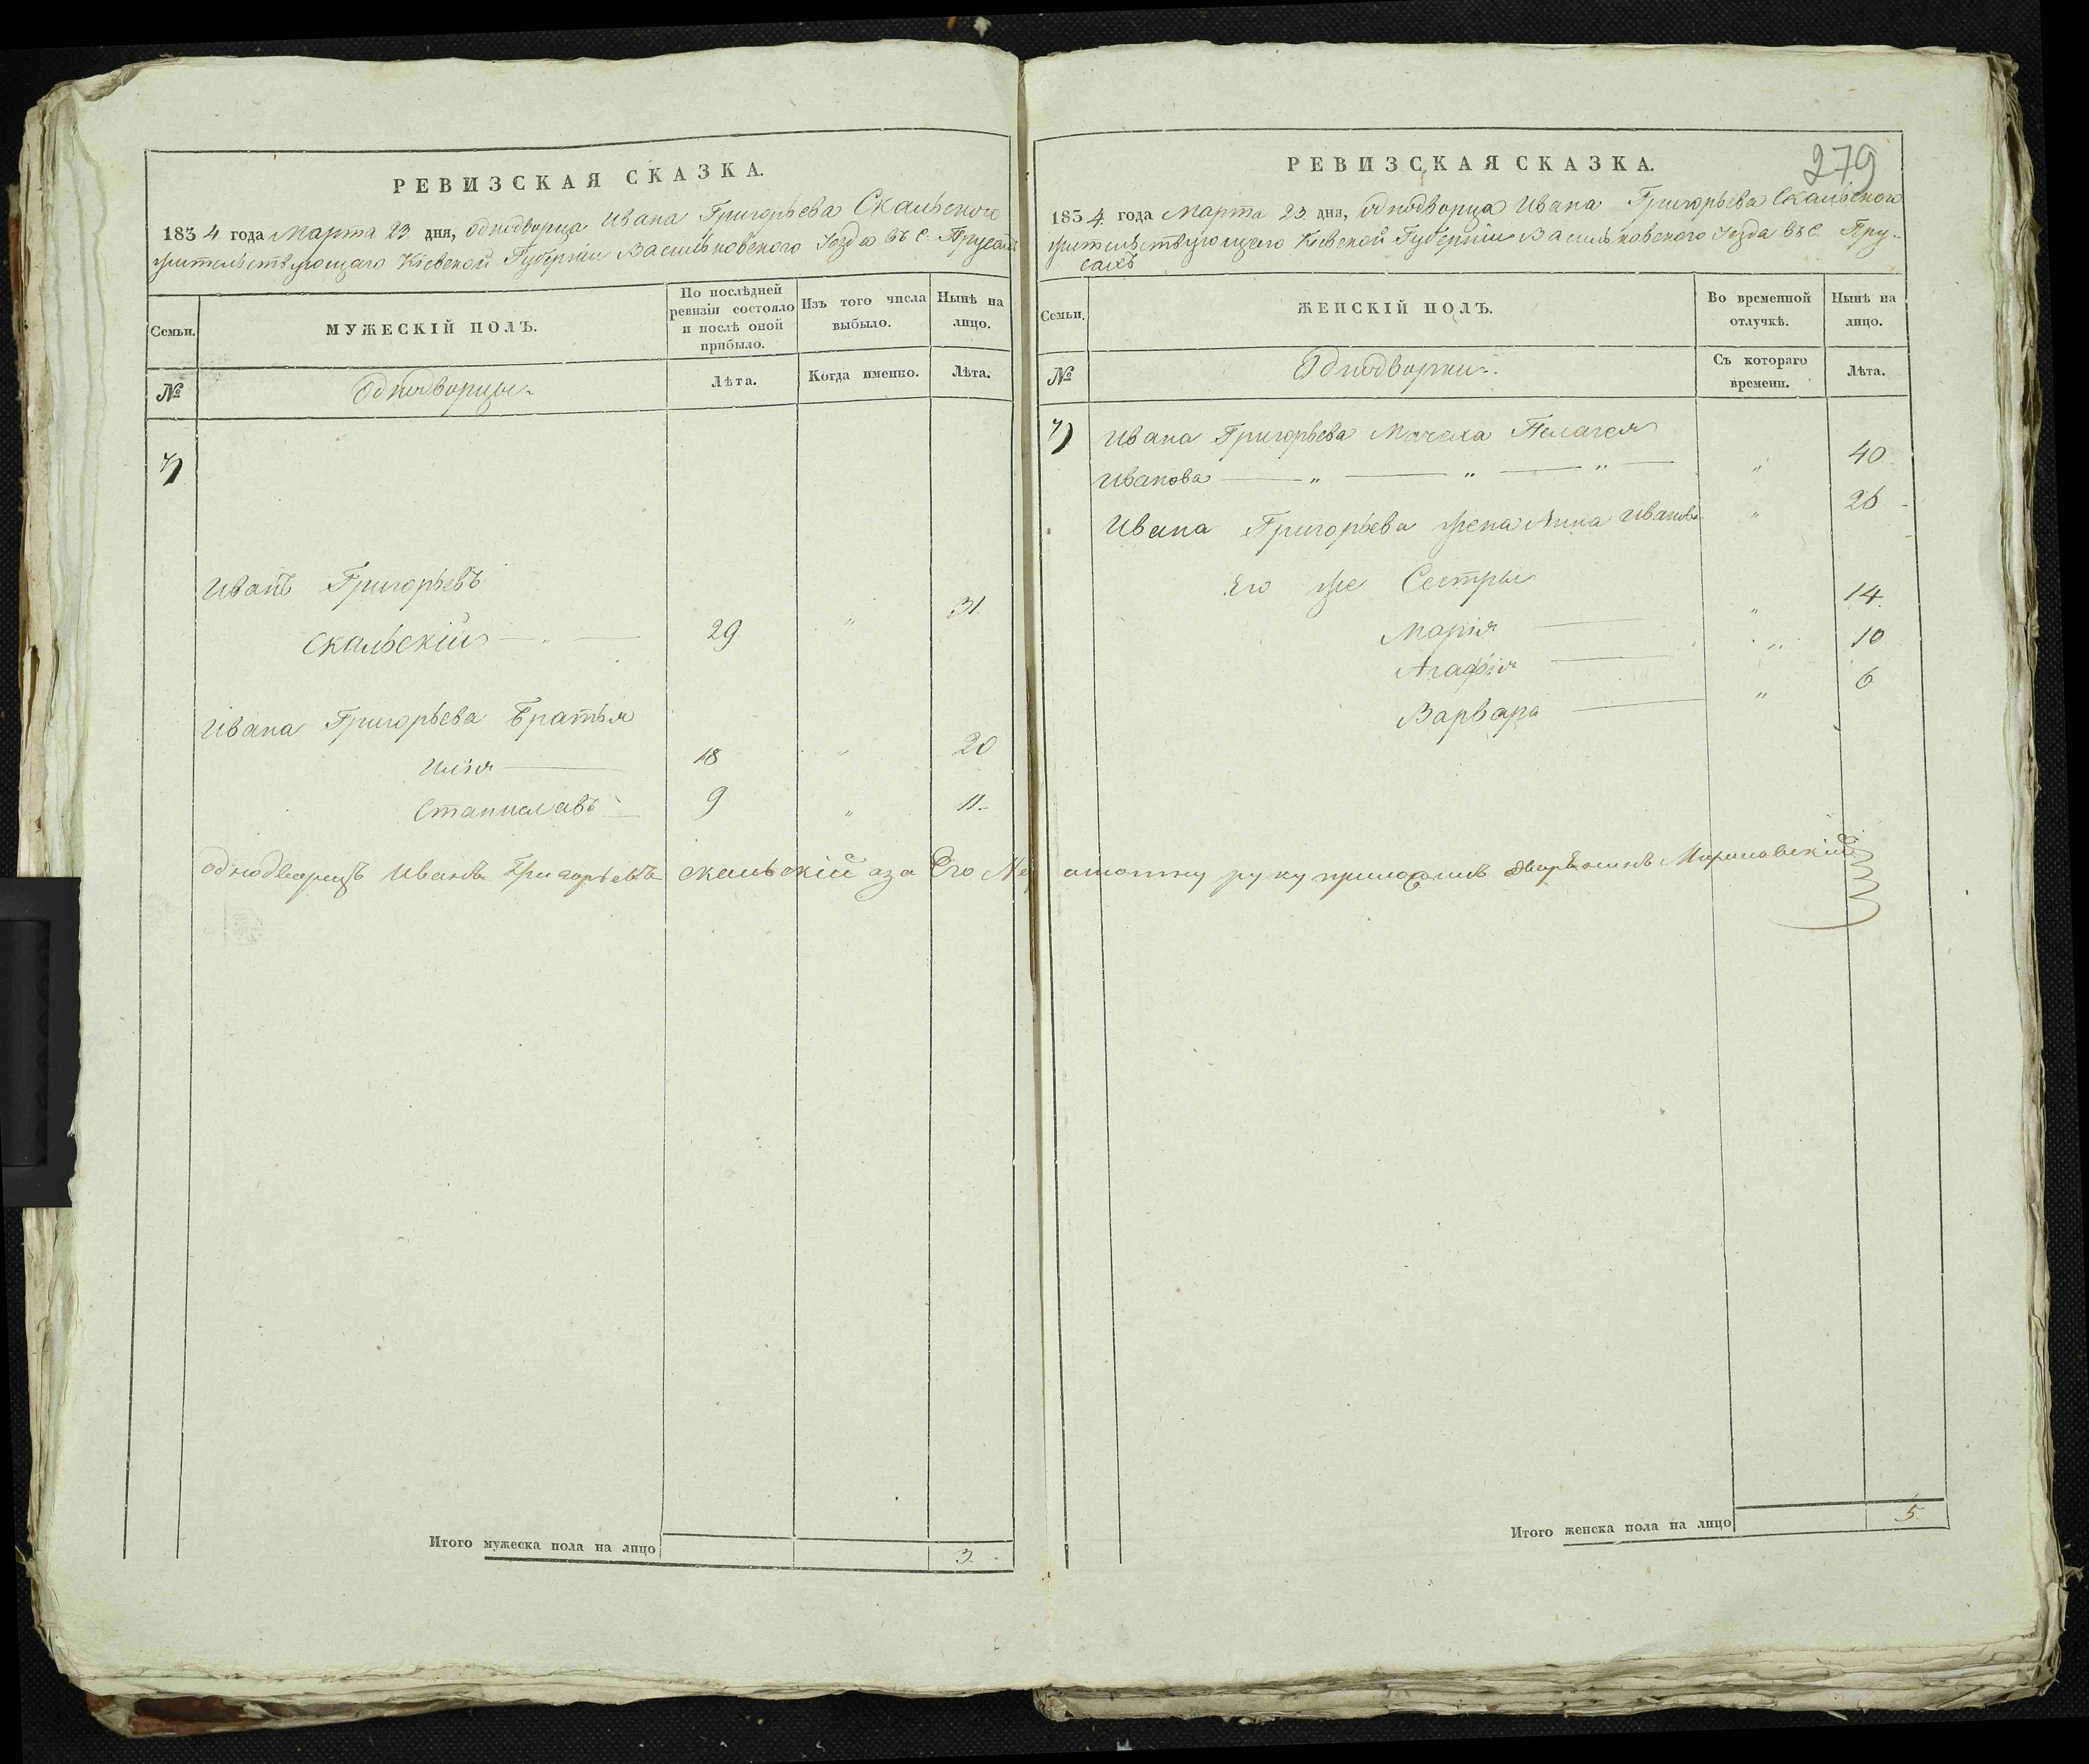 РЕВИЗСКАЯ СКАЗКА.
1834 года Марта 23 дня, однодворца Ивана Григорьева Скальского
жительствующаго Кіевской Губерніи Васильковского Уезда въ с. Прусахъ
Семьи.
МУЖЕСКІЙ ПОЛЪ.
По послѣдней ревизіи состояло и послѣ оной прибыло.
Изъ того числа выбыло.
Нынѣ на лицо.
№
Однодворцы.
Лѣта.
Когда именно.
Лѣта.
7)
Иванъ Григорьевъ
Скальскій — „ — 29 „ 31.
Ивана Григорьева Братья
Илія — 18 „ 20
Станиславъ — 9 „ 11.
Итого мужеска пола на лицо 3.
279
РЕВИЗСКАЯ СКАЗКА.
1834 года Марта 23 дня, однодворца Ивана Григорьева Скальского
жительствующаго Кіевской Губерніи Васильковского Уезда въ с. Пру-
сахъ
Семьи.
ЖЕНСКІЙ ПОЛЪ.
Во временной отлучкѣ.
Нынѣ на лицо.
№
Однодворки.
Съ котораго времени.
Лѣта.
7)
Ивана Григорьева Мачеха Пелагея
Иванова — „ — „ — „ — „ 40
Ивана Григорьева жена Анна Иванова „ 26
Его же Сестры
Марія — „ 14.
Агафія — „ 10
Варвара — „ 6
однодворецъ Иванъ Григорьевъ Скальскій аза Его руку приложилъ дворянинъ
Итого женска пола на лицо 5.